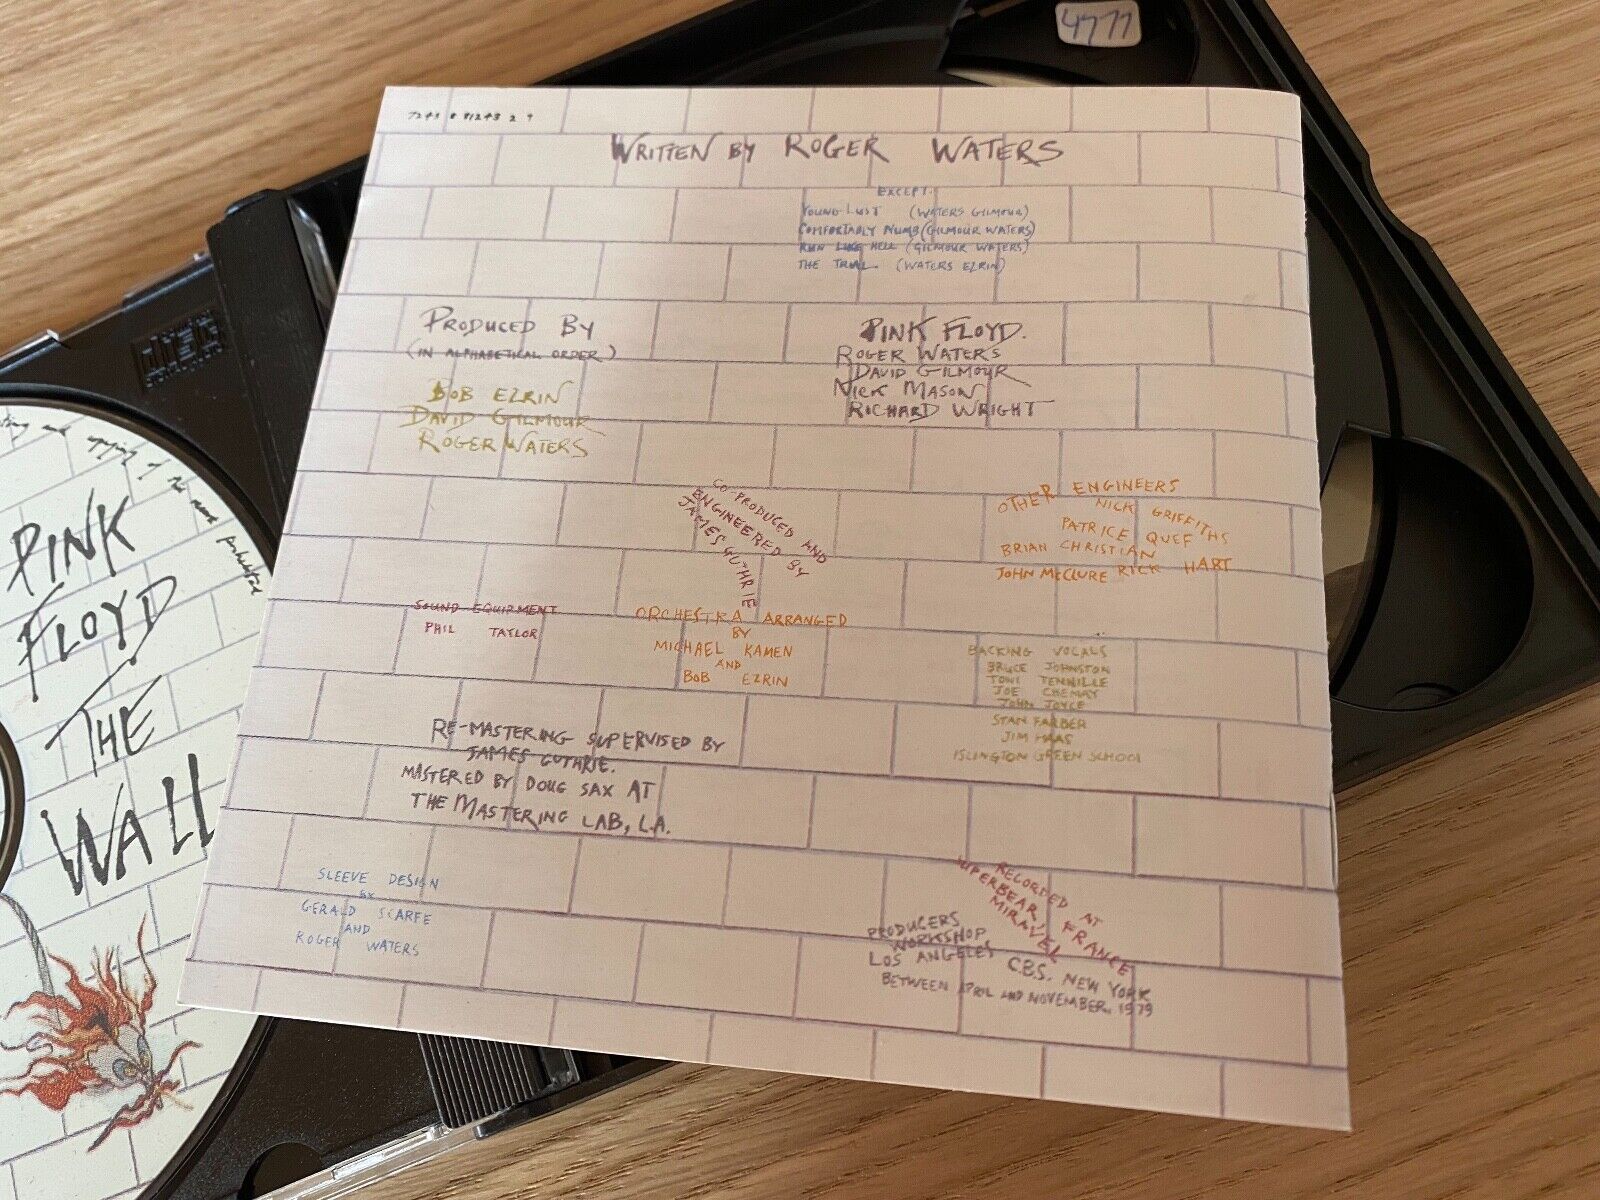 4777
7243 8 31243 2 9
WRITTEN BY ROGER WATERS
EXCEPT.
YOUNG LUST (WATERS GILMOUR)
COMFORTABLY NUMB (GILMOUR WATERS)
RUN LIKE HELL (GILMOUR WATERS)
THE TRIAL. (WATERS EZRIN)
PRODUCED BY
(IN ALPHABETICAL ORDER)
BOB EZRIN
DAVID GILMOUR
ROGER WATERS
PINK FLOYD.
ROGER WATERS
DAVID GILMOUR
NICK MASON
RICHARD WRIGHT
CO PRODUCED AND
ENGINEERED BY
JAMES GUTHRIE
OTHER ENGINEERS
NICK GRIFFITHS
PATRICE QUEF
BRIAN CHRISTIAN
JOHN McCLURE RICK HART
SOUND EQUIPMENT
PHIL TAYLOR
ORCHESTRA ARRANGED
BY
MICHAEL KAMEN
AND
BOB EZRIN
BACKING VOCALS
BRUCE JOHNSTON
TONI TENNILLE
JOE CHEMAY
JOHN JOYCE
STAN FARBER
JIM HAAS
ISLINGTON GREEN SCHOOL
RE-MASTERING SUPERVISED BY
JAMES GUTHRIE.
MASTERED BY DOUG SAX AT
THE MASTERING LAB, L.A.
SLEEVE DESIGN
BY
GERALD SCARFE
AND
ROGER WATERS
RECORDED AT
SUPERBEAR, FRANCE
MIRAVEL
PRODUCERS
WORKSHOP
LOS ANGELES
CBS. NEW YORK
BETWEEN APRIL AND NOVEMBER. 1979
and copying of the work prohibited
PINK
FLOYD
THE
WALL